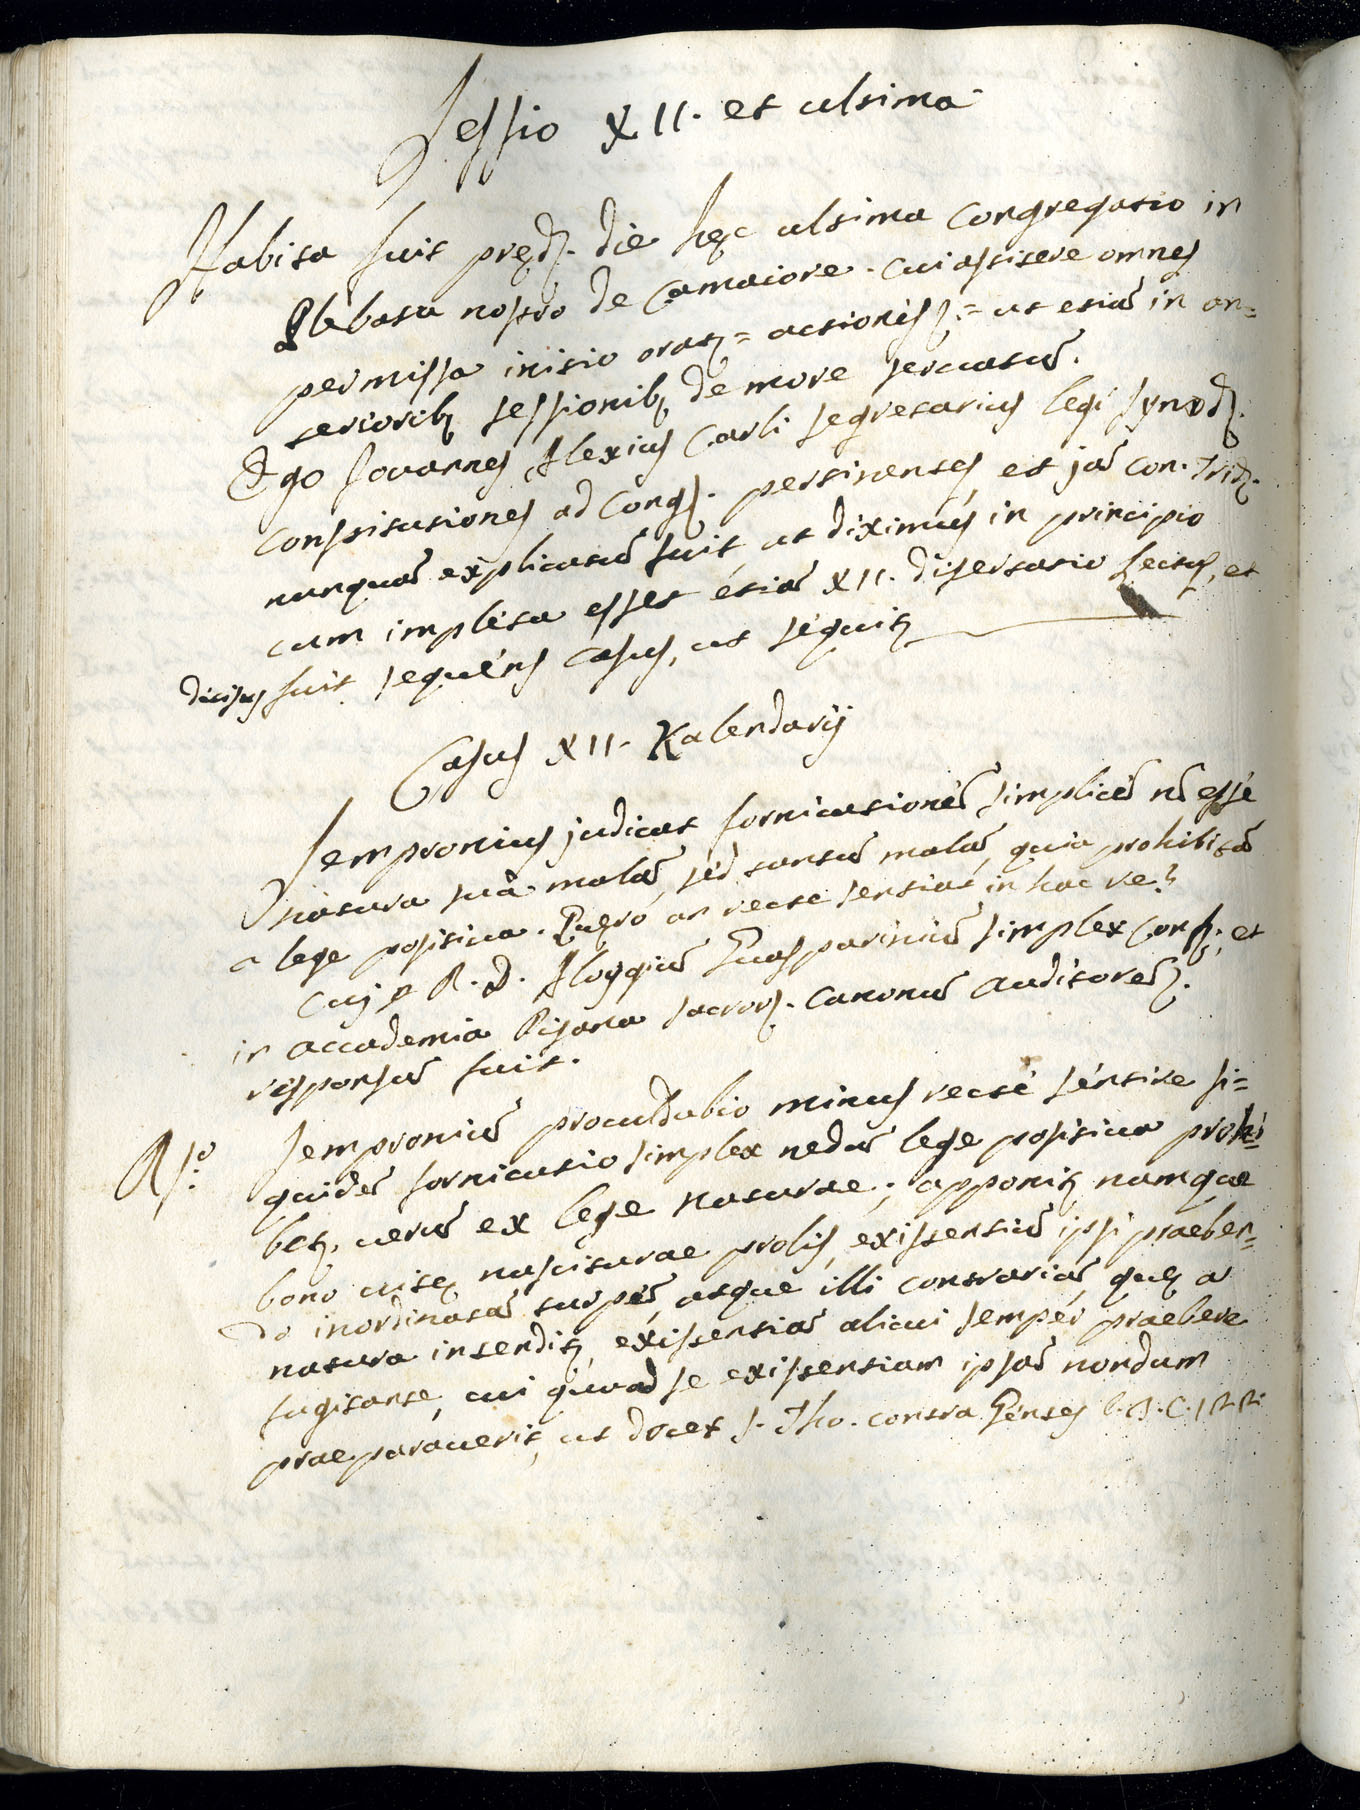 Sessio XII. et ultima
Habita fuit pręd. die hęc ultima Congregatio in
Plebatu nostro de Camaiore. cui astitere omnes
permissa initio orat= actionis = ut etiã in an=
terioribꝫ sessionibꝫ de more servatũ.
Ego Jovannes Alexius Carli segretarius legi synod.
Constitutiones ad Cong. pertinentes, et jã con. Trid.
nunquã explicatũ fuit, ut diximus in principio
cum impleta esset etiã XII. disertatio et
decisus fuit sequens Casus, ut sequit
Casus XII. Kalendarij
Sempronius judicat fornicationẽ simplicẽ nõ esse
natura suâ malã, sed tantũ malã, quia prohibitã
a lege positiva. Quęro an recte sentiat in hac re?
Cuj p R. D. Aloysiũ Guaspariniũ simplex Conf., et
in accademia Pisana sacror. Canonũ Auditorẽ.
responsũ fuit.
Rs.º Semproniũ proculdubio minus recte sentire si=
quidẽ fornicatio simplex nedũ lege positiva prohi=
bet, verũ ex lege naturae; apponit namque
bono vitę nasciturae prolis, existentiã ipsi praeben=
do inordinatã turpẽ, atque illi contrariã, quę a
natura intendit, existentiã alicui semper praebere
fugitante, cui quoad se existentiam ipsã nondum
praeparaverit, ut docet S. Tho. contra Gentes l. 3. C. 122.